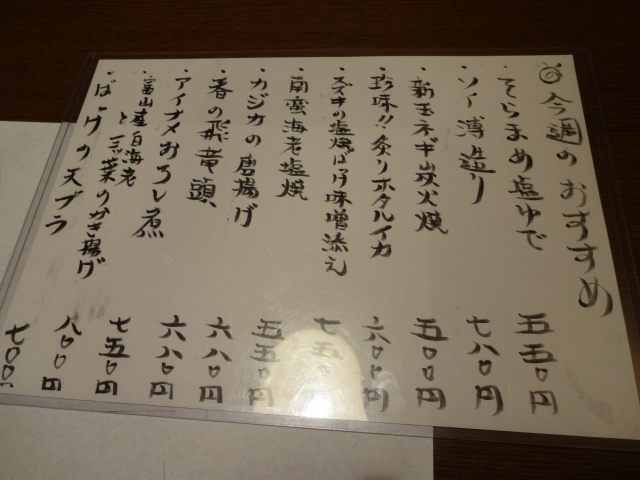 今週のおすすめ
・そらまめ塩ゆで 五五〇円
・ソイ薄造り 七八〇円
・新玉ネギ炭火焼 五〇〇円
・珍味!!炙りホタルイカ 六〇〇円
・スズキの塩焼ばっけ味噌添え 七五〇円
・南蛮海老塩焼 五五〇円
・カジカの唐揚げ 六八〇円
・春の飛竜頭 六八〇円
・アイナメおろし煮 七五〇円
・富山産白海老
と三ッ葉のかき揚げ 八〇〇円
・ばっけの天プラ 七〇〇